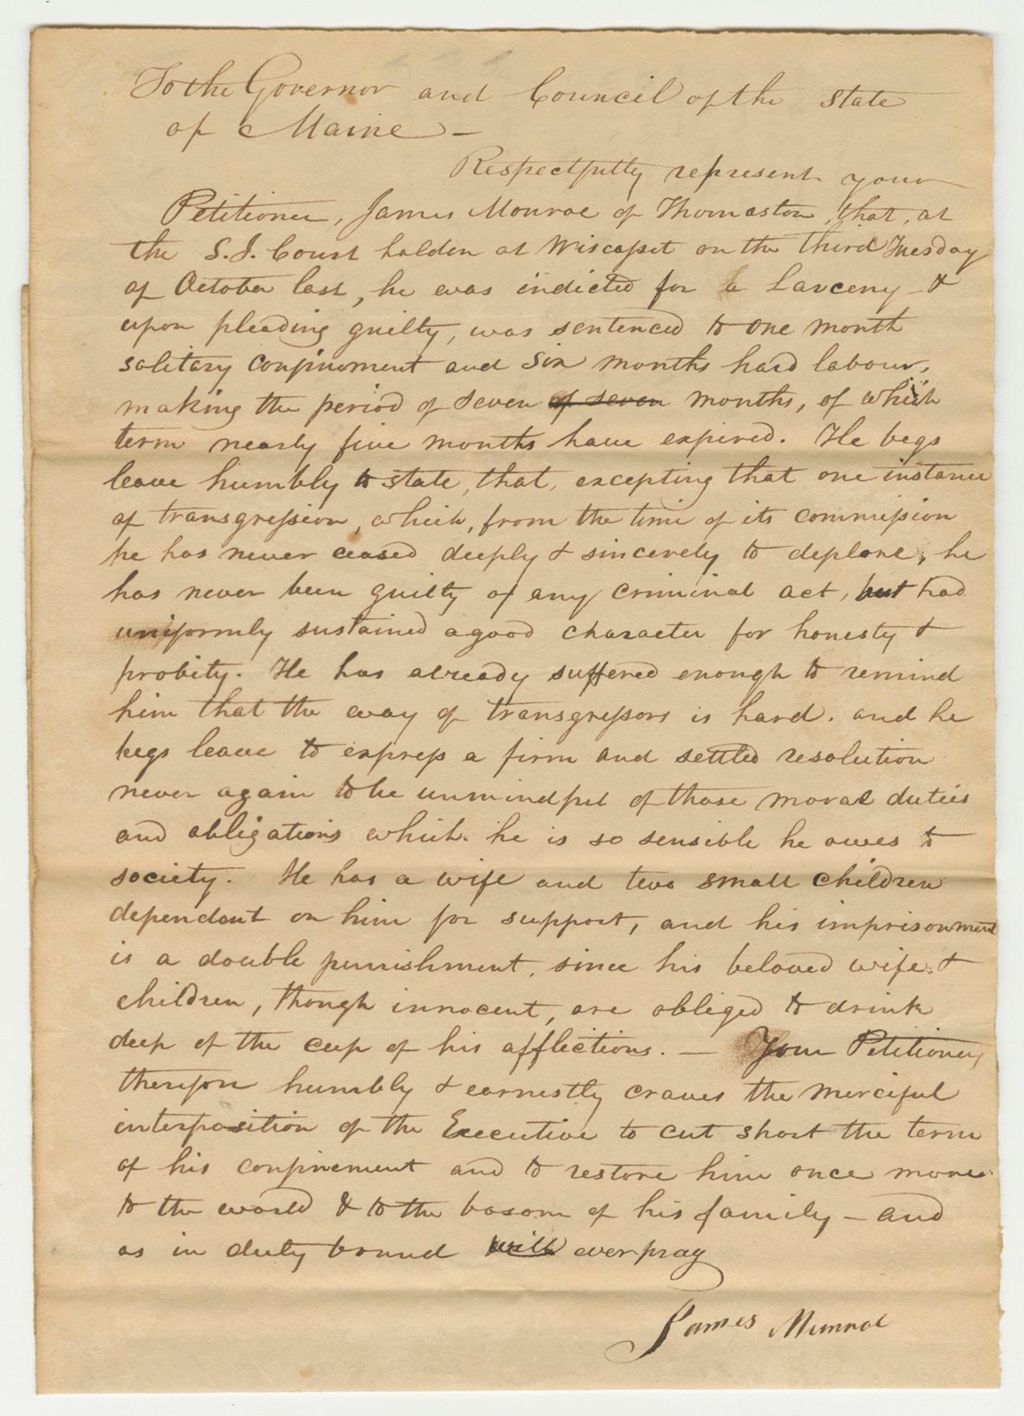 To the Governor and Council of the State
of Maine —
Respectfully represents your
Petitioner, James Monroe of Thomaston, that, at
the S. J. Court holden at Wiscasset on the third Tuesday
of October last, he was indicted for a Larceny &
upon pleading guilty, was sentenced to one month
solitary confinement and six months hard labour,
making the period of seven of seven months, of which
term nearly five months have expired. He begs
leave humbly to state, that, excepting that one instance
of transgression, which, from the time of its commission
he has never ceased deeply & sincerely to deplore, he
has never been guilty of any criminal act, but had
uniformly sustained a good character for honesty &
probity. He has already suffered enough to remind
him that the way of transgressors is hard. and he
begs leave to express a firm and settled resolution
never again to be unmindful of those moral duties
and obligations which he is so sensible he owes to
society. He has a wife and two small children
dependant on him for support, and his imprisonment
is a double punishment, since his beloved wife &
children, though innocent, are obliged to drink
deep of the cup of his afflictions. — Your Petitioner,
therefore humbly & earnestly craves the merciful
interposition of the Executive to cut short the term
of his confinement and to restore him once more
to the world & to the bosom of his family — and
as in duty bound will ever pray
James Munroe